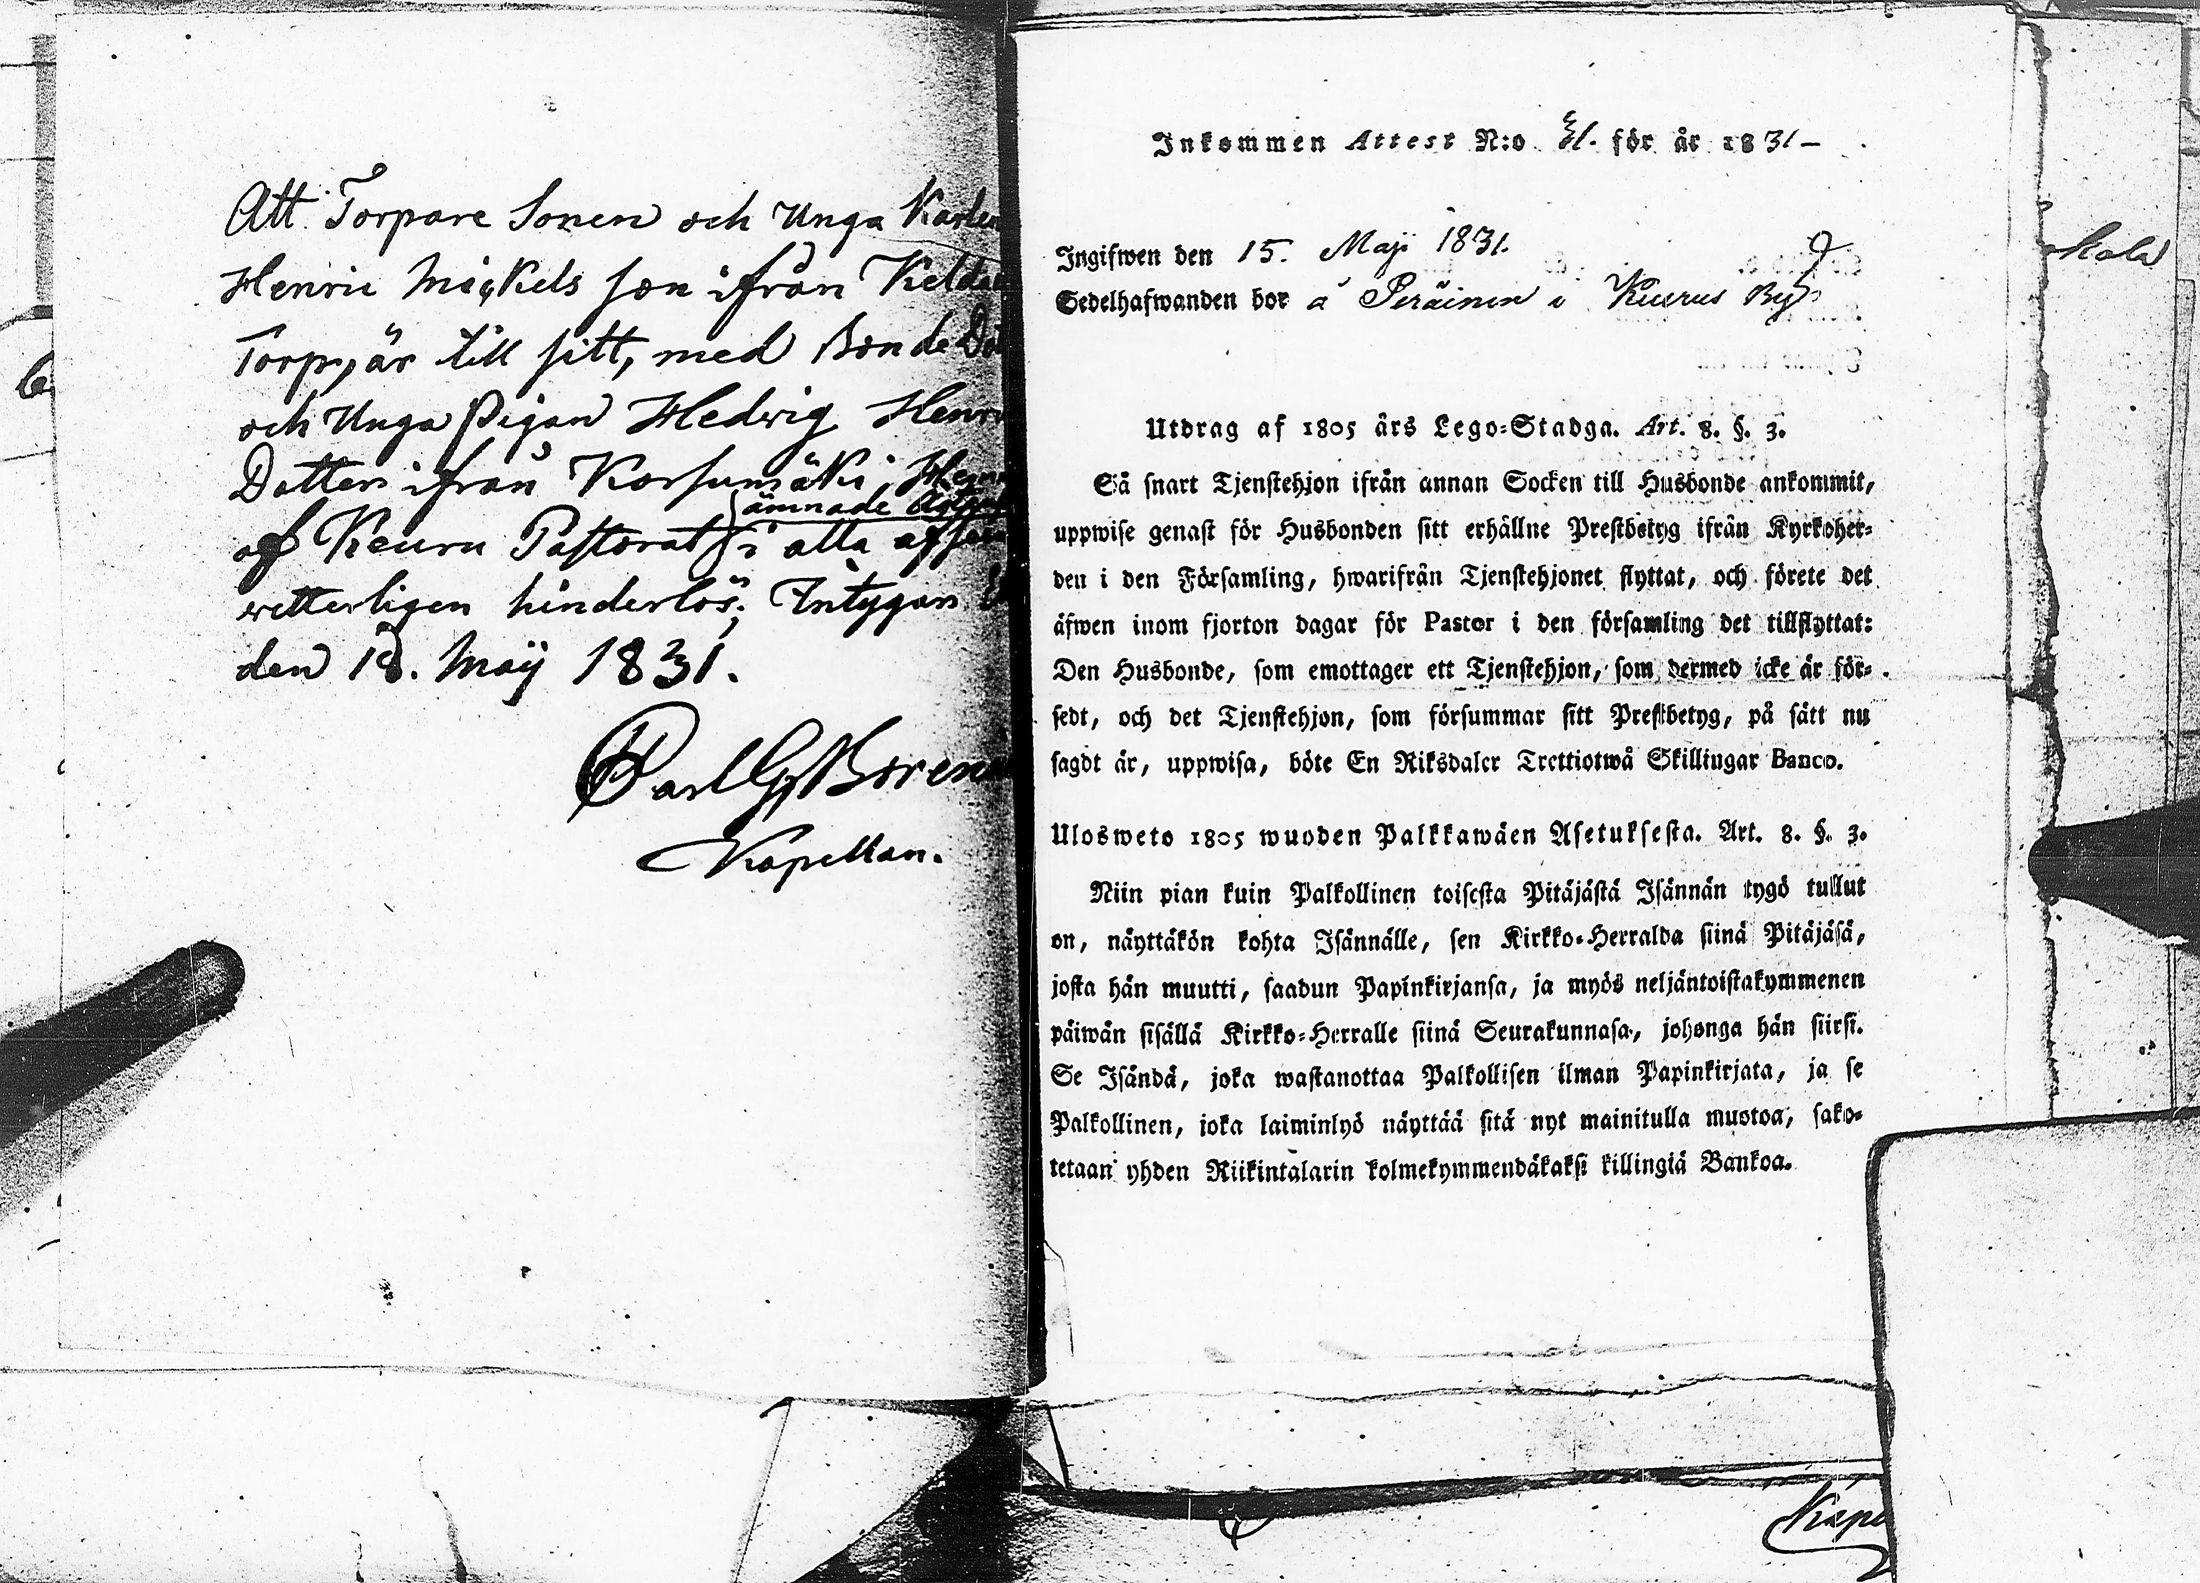 Att Torpare Sonen och Unga Karlen
Henric Mickels son ifrån
Torp, är till sitt, med Bonde
och Unga Pigan Hedvig
Dotter ifrån Korsumäki,
ämnade
af Keuru Pastorat i alla
vetterligen hinderlös; Intygar
den 18. Maÿ 1831.
Carl G
Kapellan.
Inkommen Attest N:o för år 1831-
Ingifwen den 15. Maji 1831.
Sedelhafwanden bor å Peräinen i By
Utdrag af 1805 års Lego-Stadga. Art. 8. §. 3.
Så snart Tjenstehjon ifrån annan Socken till Husbonde ankommit,
uppwise genast för Husbonden sitt erhållne Prestbetyg ifrån Kyrkoher-
den i den Församling, hwarifrån Tjenstehjonet flyttat, och förete det
äfwen inom fjorton dagar för Pastor i den församling det tillflyttat:
Den Husbonde, som emottager ett Tjenstehjon, som dermed icke är för-
sedt, och det Tjenstehjon, som försummar sitt Prestbetyg, på sätt nu
sagdt är, uppwisa, böte En Riksdaler Trettiotwå Skillingar Banco.
Ulosweto 1805 wuoden Palkkawäen Asetuksesta. Art. 8. §. 3.
Niin pian kuin Palkollinen toisesta Pitäjästä Isännän tygö tullut
on, näyttäkön kohta Isännälle, sen Kirkko-Herralda siinä Pitäjäsä,
josta hän muutti, saadun Papinkirjansa, ja myös neljäntoistakymmenen
päiwän sisällä Kirkko-Herralle siinä Seurakunnasa, johonga hän siirsi.
Se Isändä, joka wastanottaa Palkollisen ilman Papinkirjata, ja se
Palkollinen, joka laiminlyö näyttää sitä nyt mainitulla muotoa, sako-
tetaan yhden Riikintalarin kolmekymmendäkaksi killingiä Bankoa.